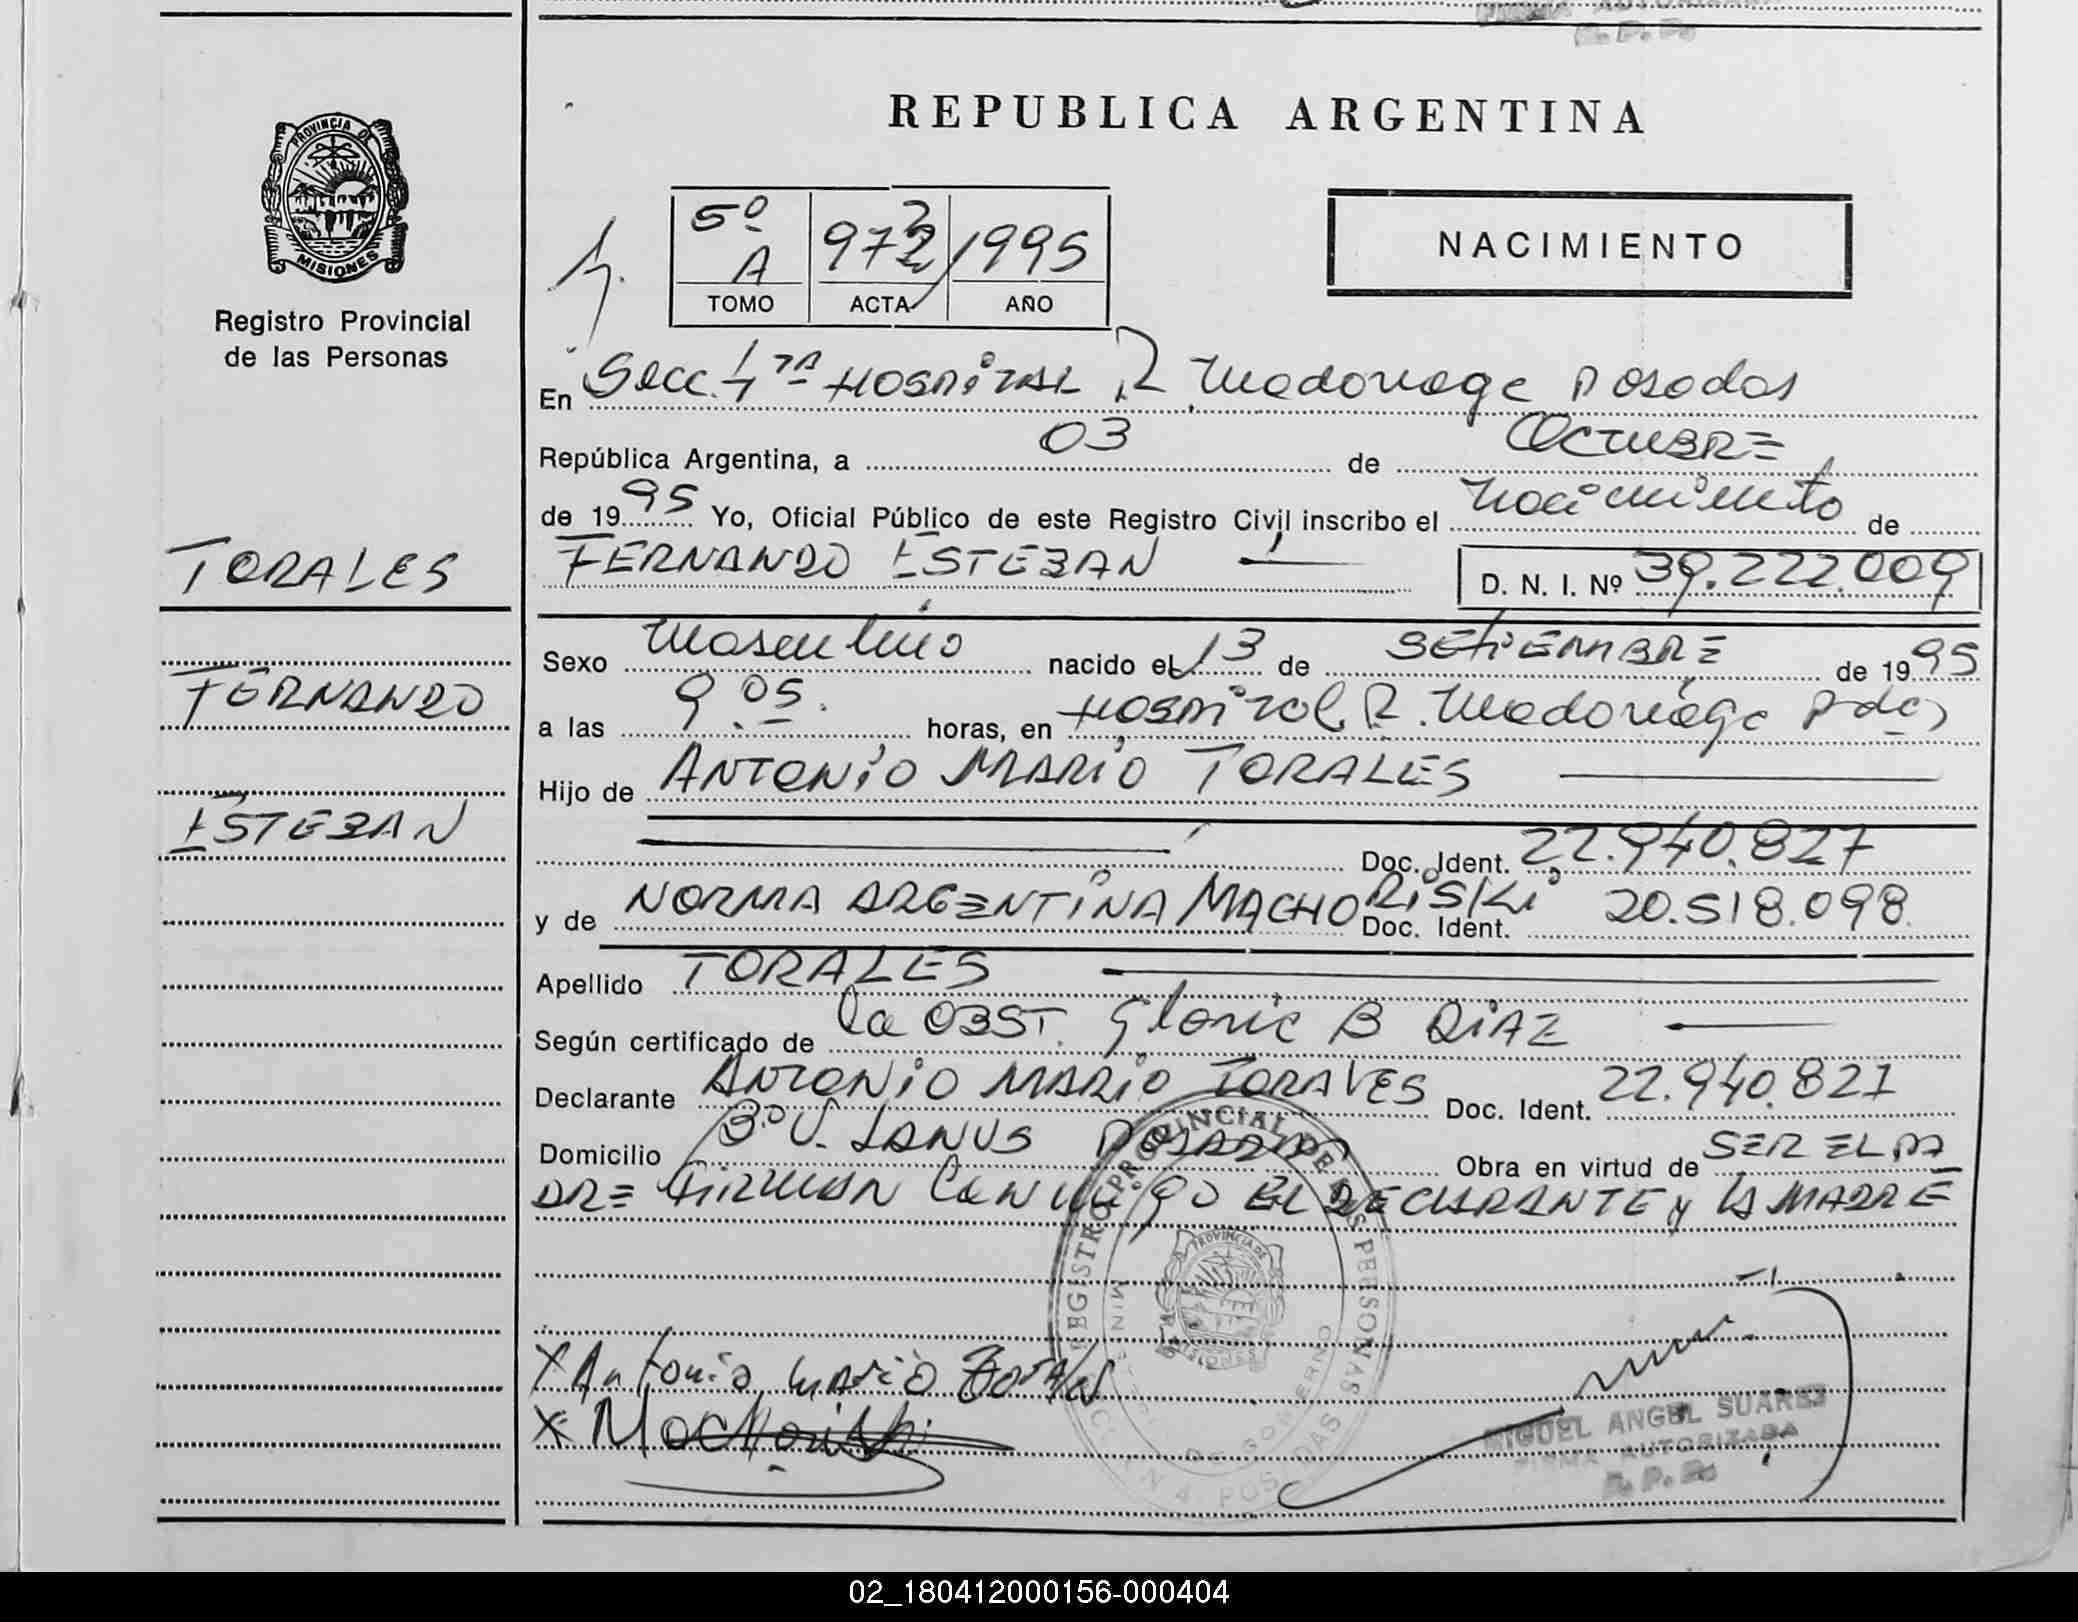 FIRMA AUTORIZADA
R. P. P.
REPUBLICA ARGENTINA
PROVINCIA DE
MISIONES
Registro Provincial
de las Personas
5º A 972 1995
TOMO ACTA AÑO
NACIMIENTO
En Secc. 4ta Hospital R. Madariaga Posadas
República Argentina, a 03 de Octubre
de 1995 Yo, Oficial Público de este Registro Civil inscribo el nacimiento de
FERNANDO ESTEBAN D. N. I. Nº 39.222.009
TORALES
FERNANDO
ESTEBAN
Sexo Masculino nacido el 13 de SETIEMBRE de 1995
a las 9.05. horas, en Hospital R. Madariaga Pdas
Hijo de ANTONIO MARIO TORALES
Doc. Ident. 22.940.827
y de NORMA ARGENTINA MACHORISKI Doc. Ident. 20.518.098
Apellido TORALES
Según certificado de la OBST. Gloria B DIAZ
Declarante ANTONIO MARIO TORALES Doc. Ident. 22.940.827
Domicilio Bº V. LANUS POSADAS Obra en virtud de SER EL PA
DRE FIRMAN Conmigo EL DECLARANTE y LA MADRE
REGISTRO PROVINCIAL DE LAS PERSONAS
MINISTERIO DE GOBIERNO
SECCION 4 POSADAS
PROVINCIA DE
MISIONES
X Antonio Mario Torales
X Machoriski
MIGUEL ANGEL SUAREZ
FIRMA AUTORIZADA
R. P. P.
02_180412000156-000404